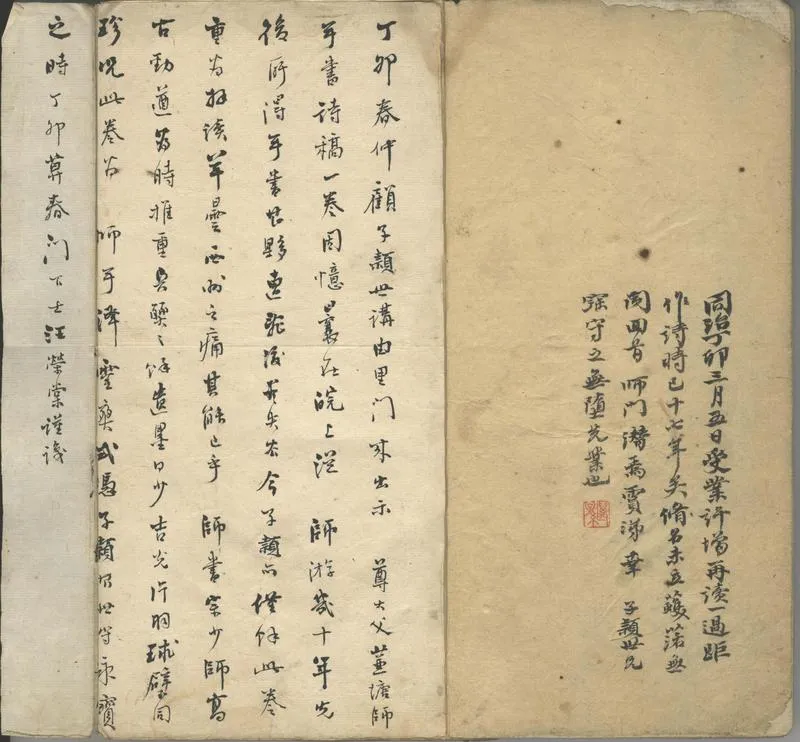 同治丁卯三月五日受業許增再讀一過距
作詩時已十七年矣脩名未立蘦落無
聞回首師門潸焉賈涕幸子穎世兄
寶守之無墮先業也
丁卯春仲顧子穎世講由里門來出示尊大父蕓塘師
手書詩稿一卷因憶曩在皖上從師游幾十年先
後所得手書甚夥連
今子穎亦僅餘此卷
重為校讀羊曇西州之痛其能已乎師書宗少師高
古勁逎為時推重兵燹之餘遺墨日少吉光片羽球璧同
珍況此卷為師手澤靈爽式憑子穎昆世守永寶
之時丁卯暮春門下士汪榮棠謹識